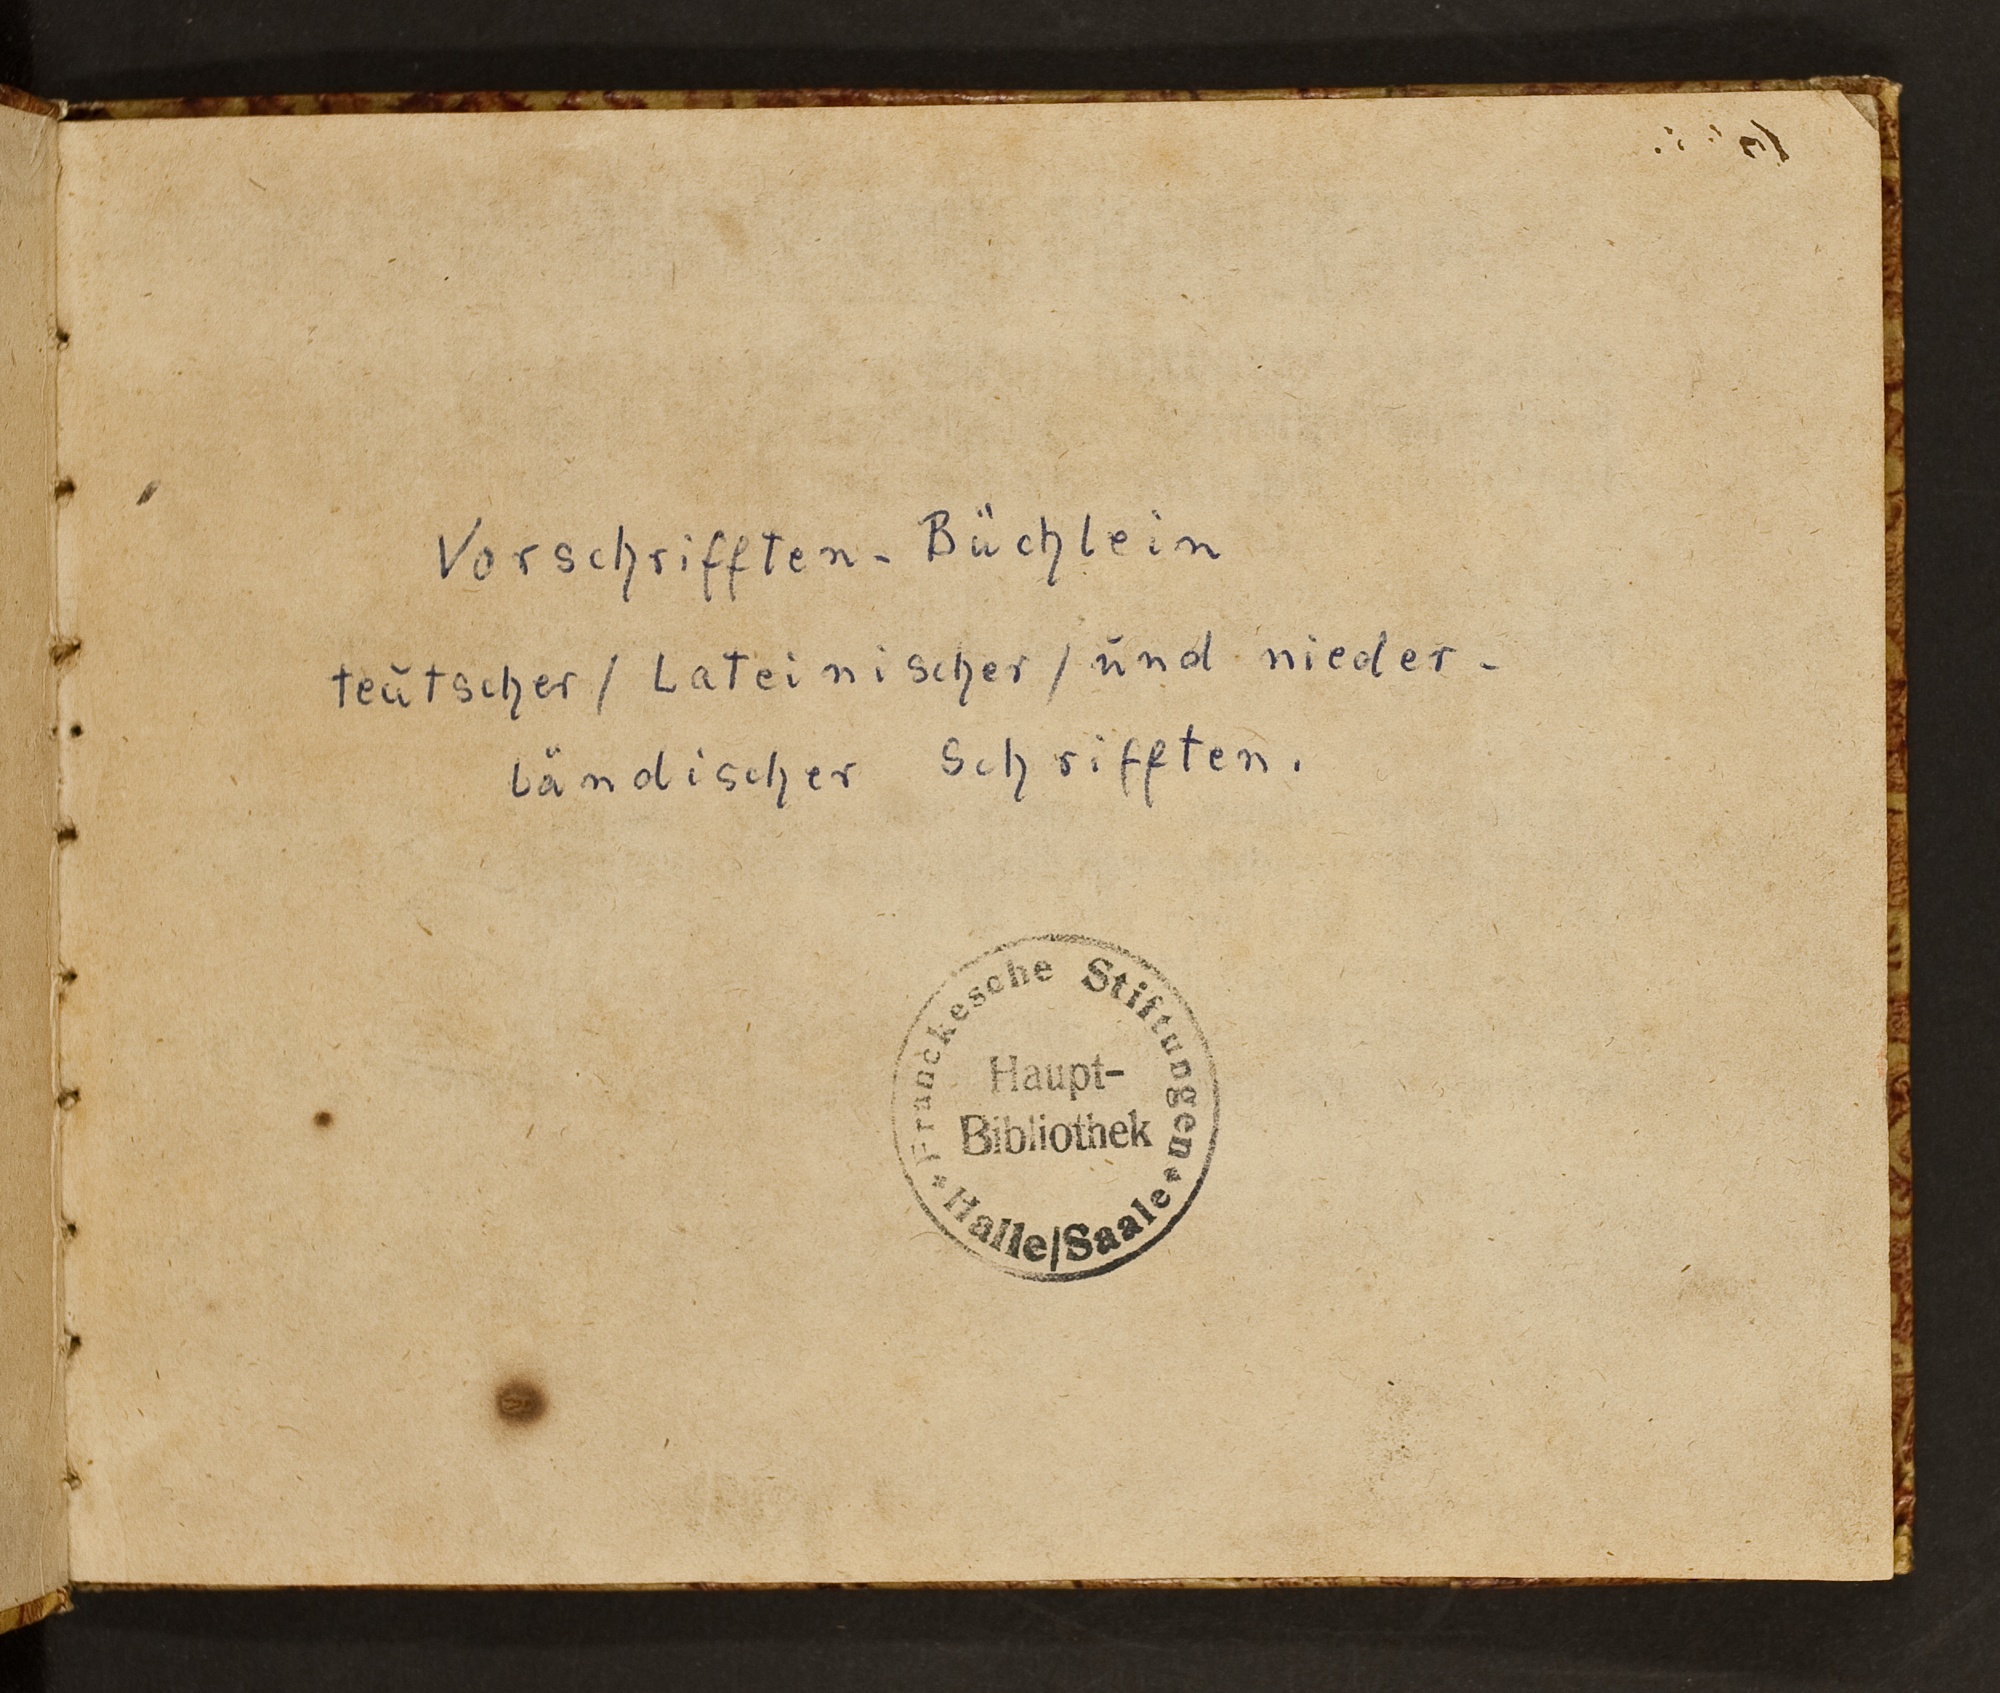 Vorschrifften-Büchlein
teŭtscher/ Lateinischer/ ŭnd nieder-
ländischer Schrifften.
Franckesche Stiftungen
Haupt-
Bibliothek
* Halle/Saale *